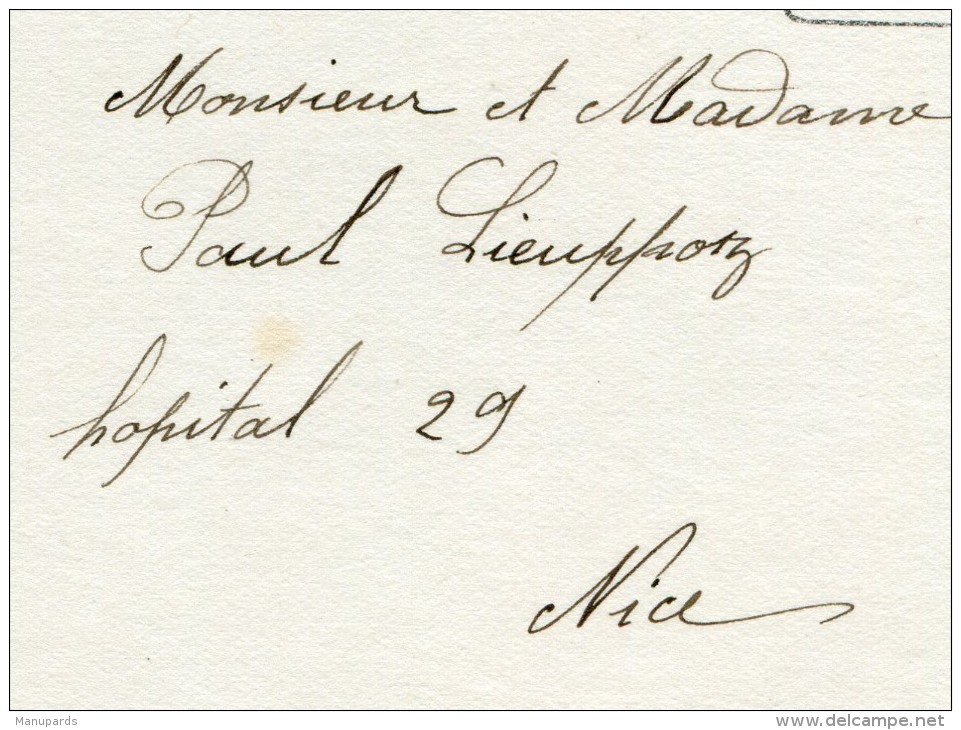 Monsieur et Madame
Paul Lieupposz
hopital 29
Nice
Manupards
www.delcampe.net